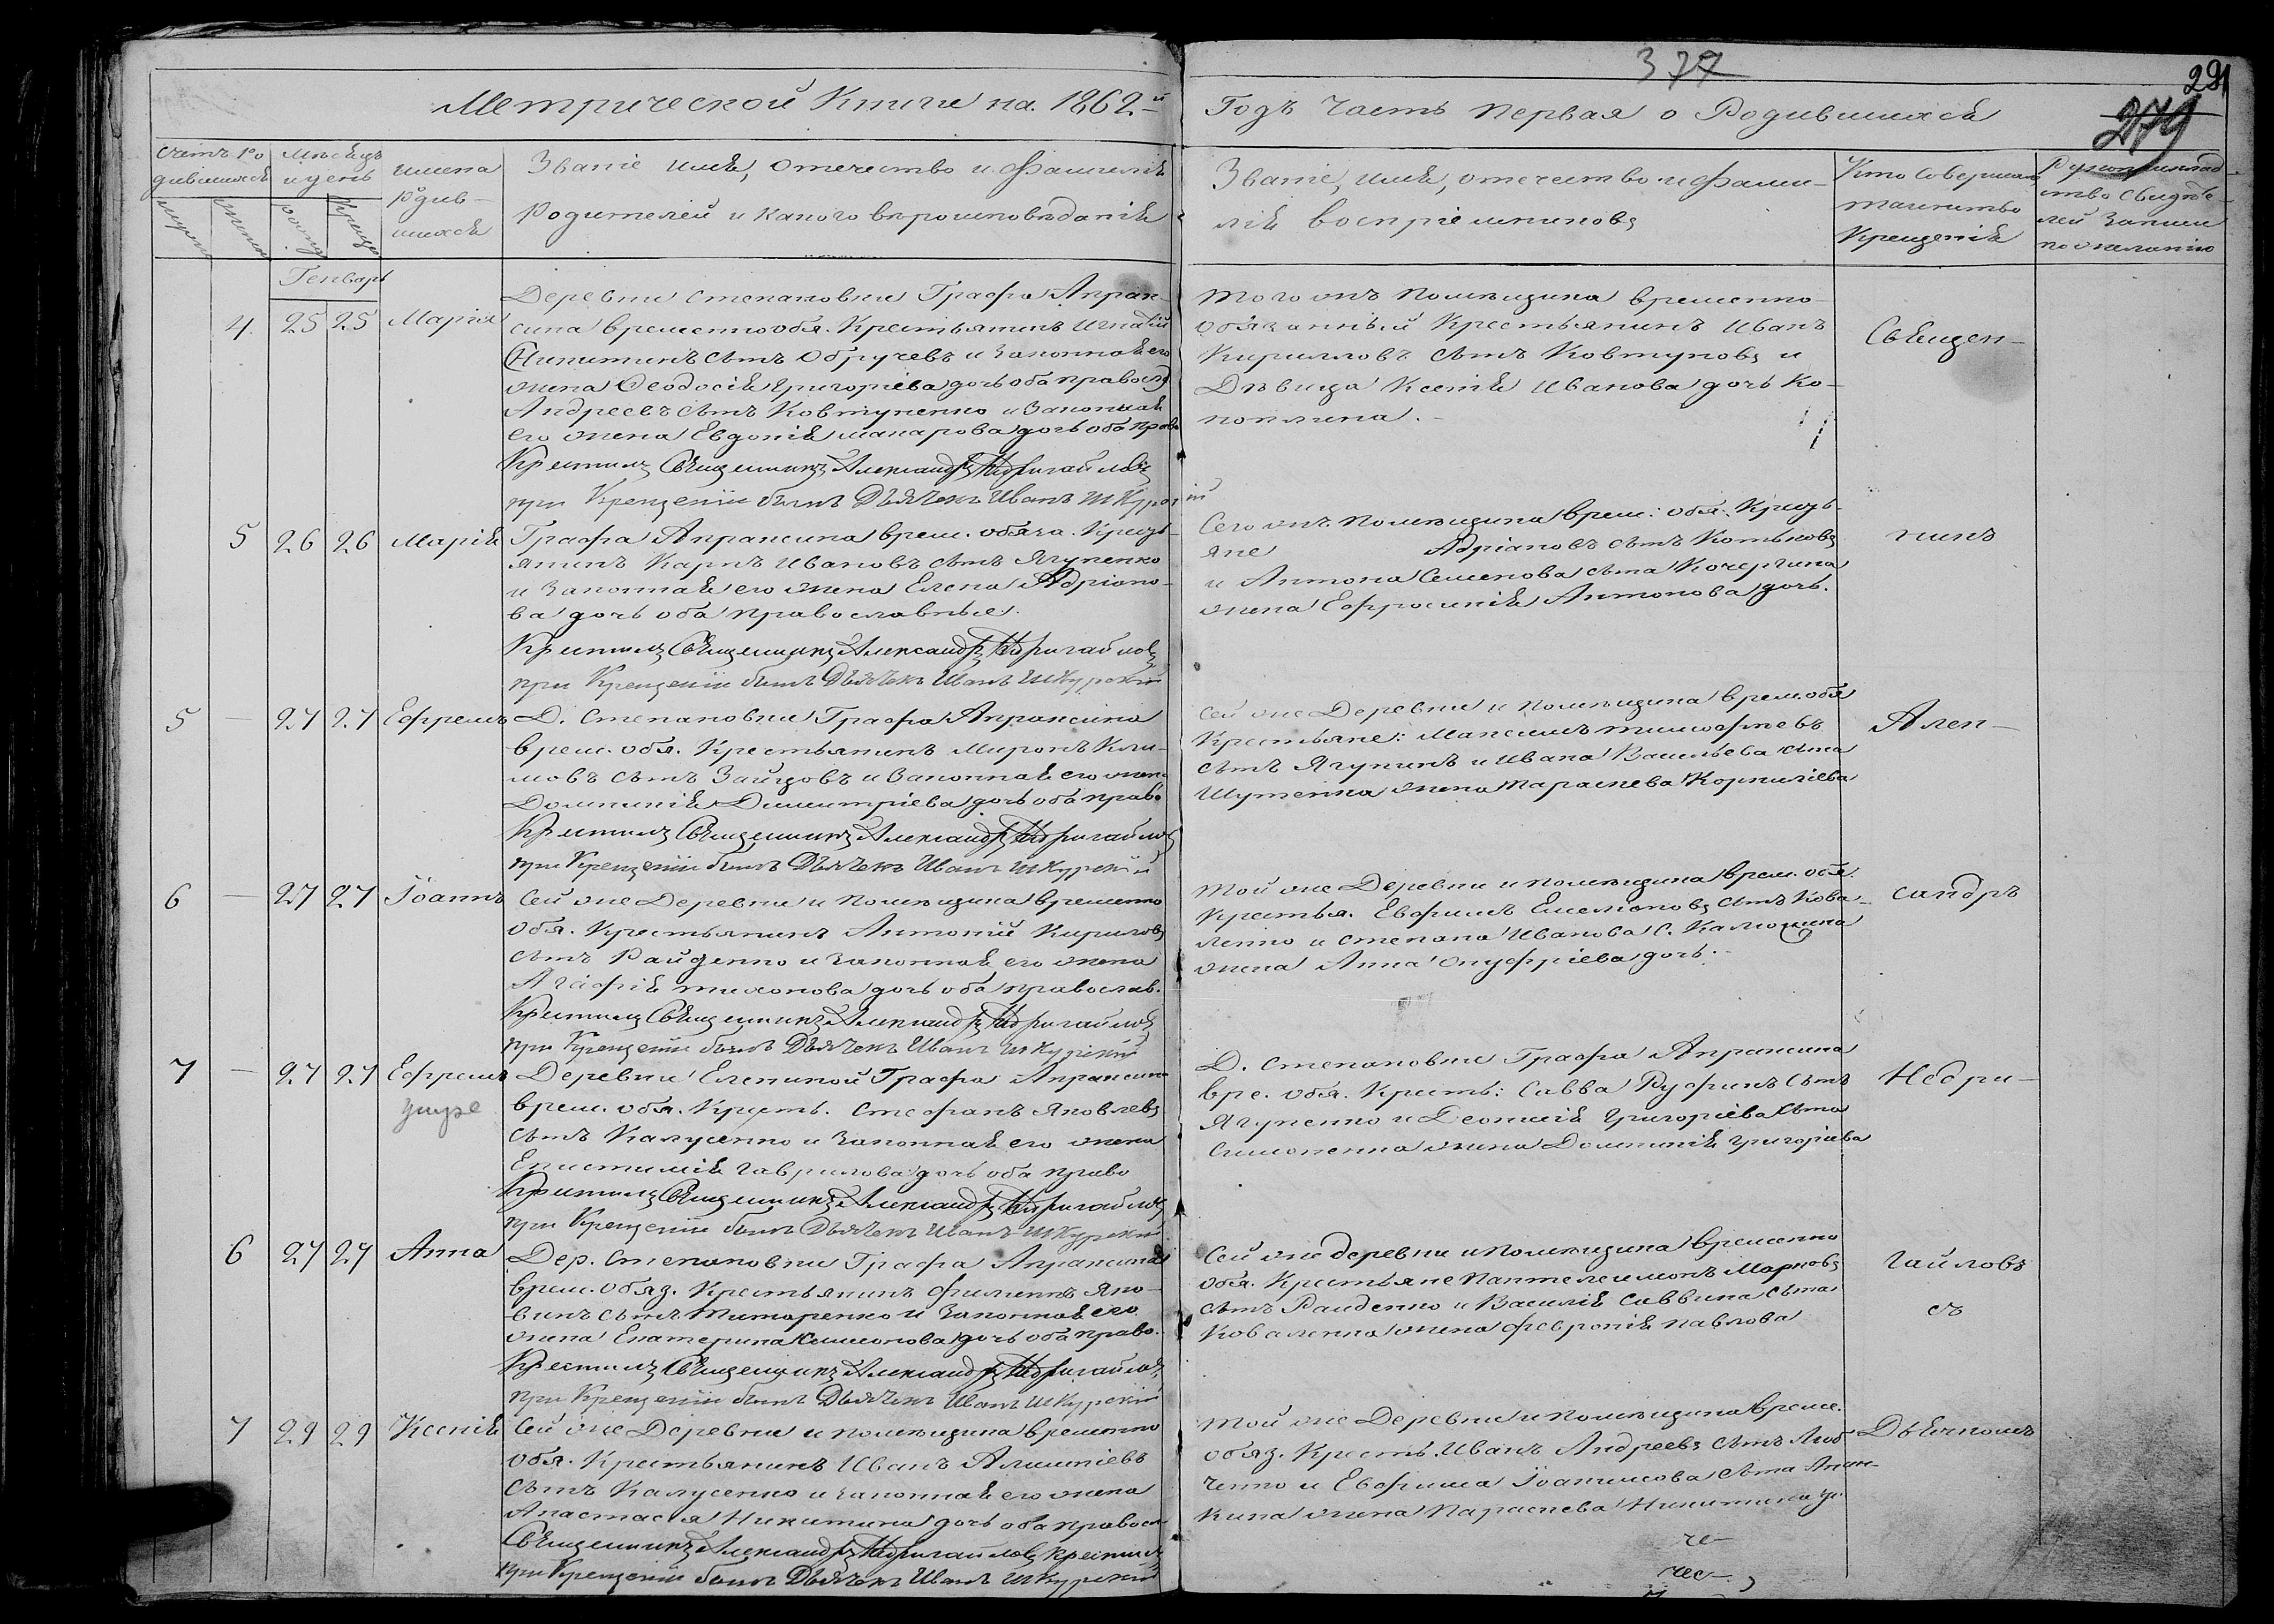 377
291
279
Метрической Книги на 1862й Годъ Часть первая о Родившихся
Счетъ родившихся
Мѣсяцъ и день
имена родившихся
Званіе имя, отечество и фамилія
Родителей и какого вѣроисповѣданія
Званіе, имя, отечество и фами-
лія воспріемниковъ
Кто совершалъ
таинство
Крещенія
Рукоприклад
ство свидѣте
лей записи
по желанію
Генварь
4 25 25 Марія
Деревни Степановки Графа Апрак-
сина временнообя. Крестьянинъ Игнатій
Никитинъ сынъ Обручевъ и законная его
жена Феодосія Григоріева дочь оба правосл
Андреевъ сынъ Ковтуненко и Законная
его жена Евдокія Макарова дочь оба право
Крестилъ Священникъ Александръ Недригайловъ
при Крещеніи былъ Дьячекъ Иванъ Шкурскій
Того жъ помѣщика временно
обязанный Крестьянинъ Иванъ
Кирилловъ сынъ Ковтуновъ и
Дѣвица Ксенія Иванова дочь Ко-
ноплина.
Священ-
5 26 26 Марія
Графа Апраксина врем. обяза. Кресть-
янинъ Карпъ Ивановъ сынъ Ягуненко
и Законная его жена Елена Адріано-
ва дочь оба православные.
Крестилъ Священникъ Александръ Недригайловъ
при Крещеніи былъ Дьячекъ Иванъ Шкурскій
Сего жъ помѣщика врем: обя. Кресть-
яне Адріановъ сынъ Котьковъ
и Антона Семенова сына Кочергина
жена Ефросинія Антонова дочь.
никъ
5 - 27 27 Ефремъ
Д. Степановки Графа Апраксина
врем. обя. Крестьянинъ Миронъ Кли-
мовъ сынъ Зайцовъ и Законная его жена
Домникія Димитріева дочь оба право
Крестилъ Священникъ Александръ Недригайловъ
при Крещеніи былъ Дьячекъ Иванъ Шкурскій
Сей же Деревни и помѣщика врем. обя
Крестьяне: Максимъ Тимофѣевъ
сынъ Ягунинъ и Ивана Васильева сына
Шутенка жена Параскева Корниліева
Алек-
6 - 27 27 Іоаннъ
Сей же Деревни и помѣщика временно
обя. Крестьянинъ Антоній Кириловъ
сынъ Райденко и законная его жена
Агафія Тихонова дочь оба православ.
Крестилъ Священникъ Александръ Недригайловъ
при Крещеніи былъ Дьячекъ Иванъ Шкурскій
Той же Деревни и помѣщика врем. обя.
Крестья. Евфимъ Емельяновъ сынъ Кова-
ленко и Степана Иванова с. Калюжина
жена Анна Онуфріева дочь.
сандръ
7 - 27 27 Ефремъ
умре
Деревни Еленикой Графа Апраксина
врем. обя. Кресть. Стефанъ Яковлевъ
сынъ Калусенко и Законная его жена
Епистимія Гаврилова дочь оба право
Крестилъ Священникъ Александръ Недригайловъ
при Крещеніи былъ Дьячекъ Иванъ Шкурскій
Д. Степановки Графа Апраксина
вре. обя. Кресть: Савва Руфинъ сынъ
Ягуненко и Леонтія Григоріева сына
Симоненка жена Домникія Григоріева
Недри-
6 27 27 Анна
Дер. Степановки Графа Апраксина
врем. обяз. Крестьянинъ Филиппъ Яко-
винъ сынъ Титаренко и Законная его
жена Екатерина Симеонова дочь оба право.
Крестилъ Священникъ Александръ Недригайловъ,
при Крещеніи былъ Дьячекъ Иванъ Шкурскій
Сей же деревни и помѣщика временно
обя. Крестьяне Пантелеимонъ Марковъ
сынъ Раиденко и Василія Саввина сына
Коваленка жена Февронія Павлова
гайловъ
съ
7 29 29 Ксенія
Сей же Деревни и помѣщика временно
обя. Крестьянинъ Иванъ Алимпіевъ
сынъ Калусенко и законная его жена
Анастасія Никитина дочь оба правосл
Священникъ Александръ Недригайловъ крестилъ
при Крещеніи былъ Дьячекъ Иванъ Шкурскій
Той же Деревни и помѣщика време.
обяз. Кресть. Иванъ Андреевъ сынъ Люб
ченко и Евфима Іоакимова сына
кина жена Параскева Никитина
Дьячкомъ